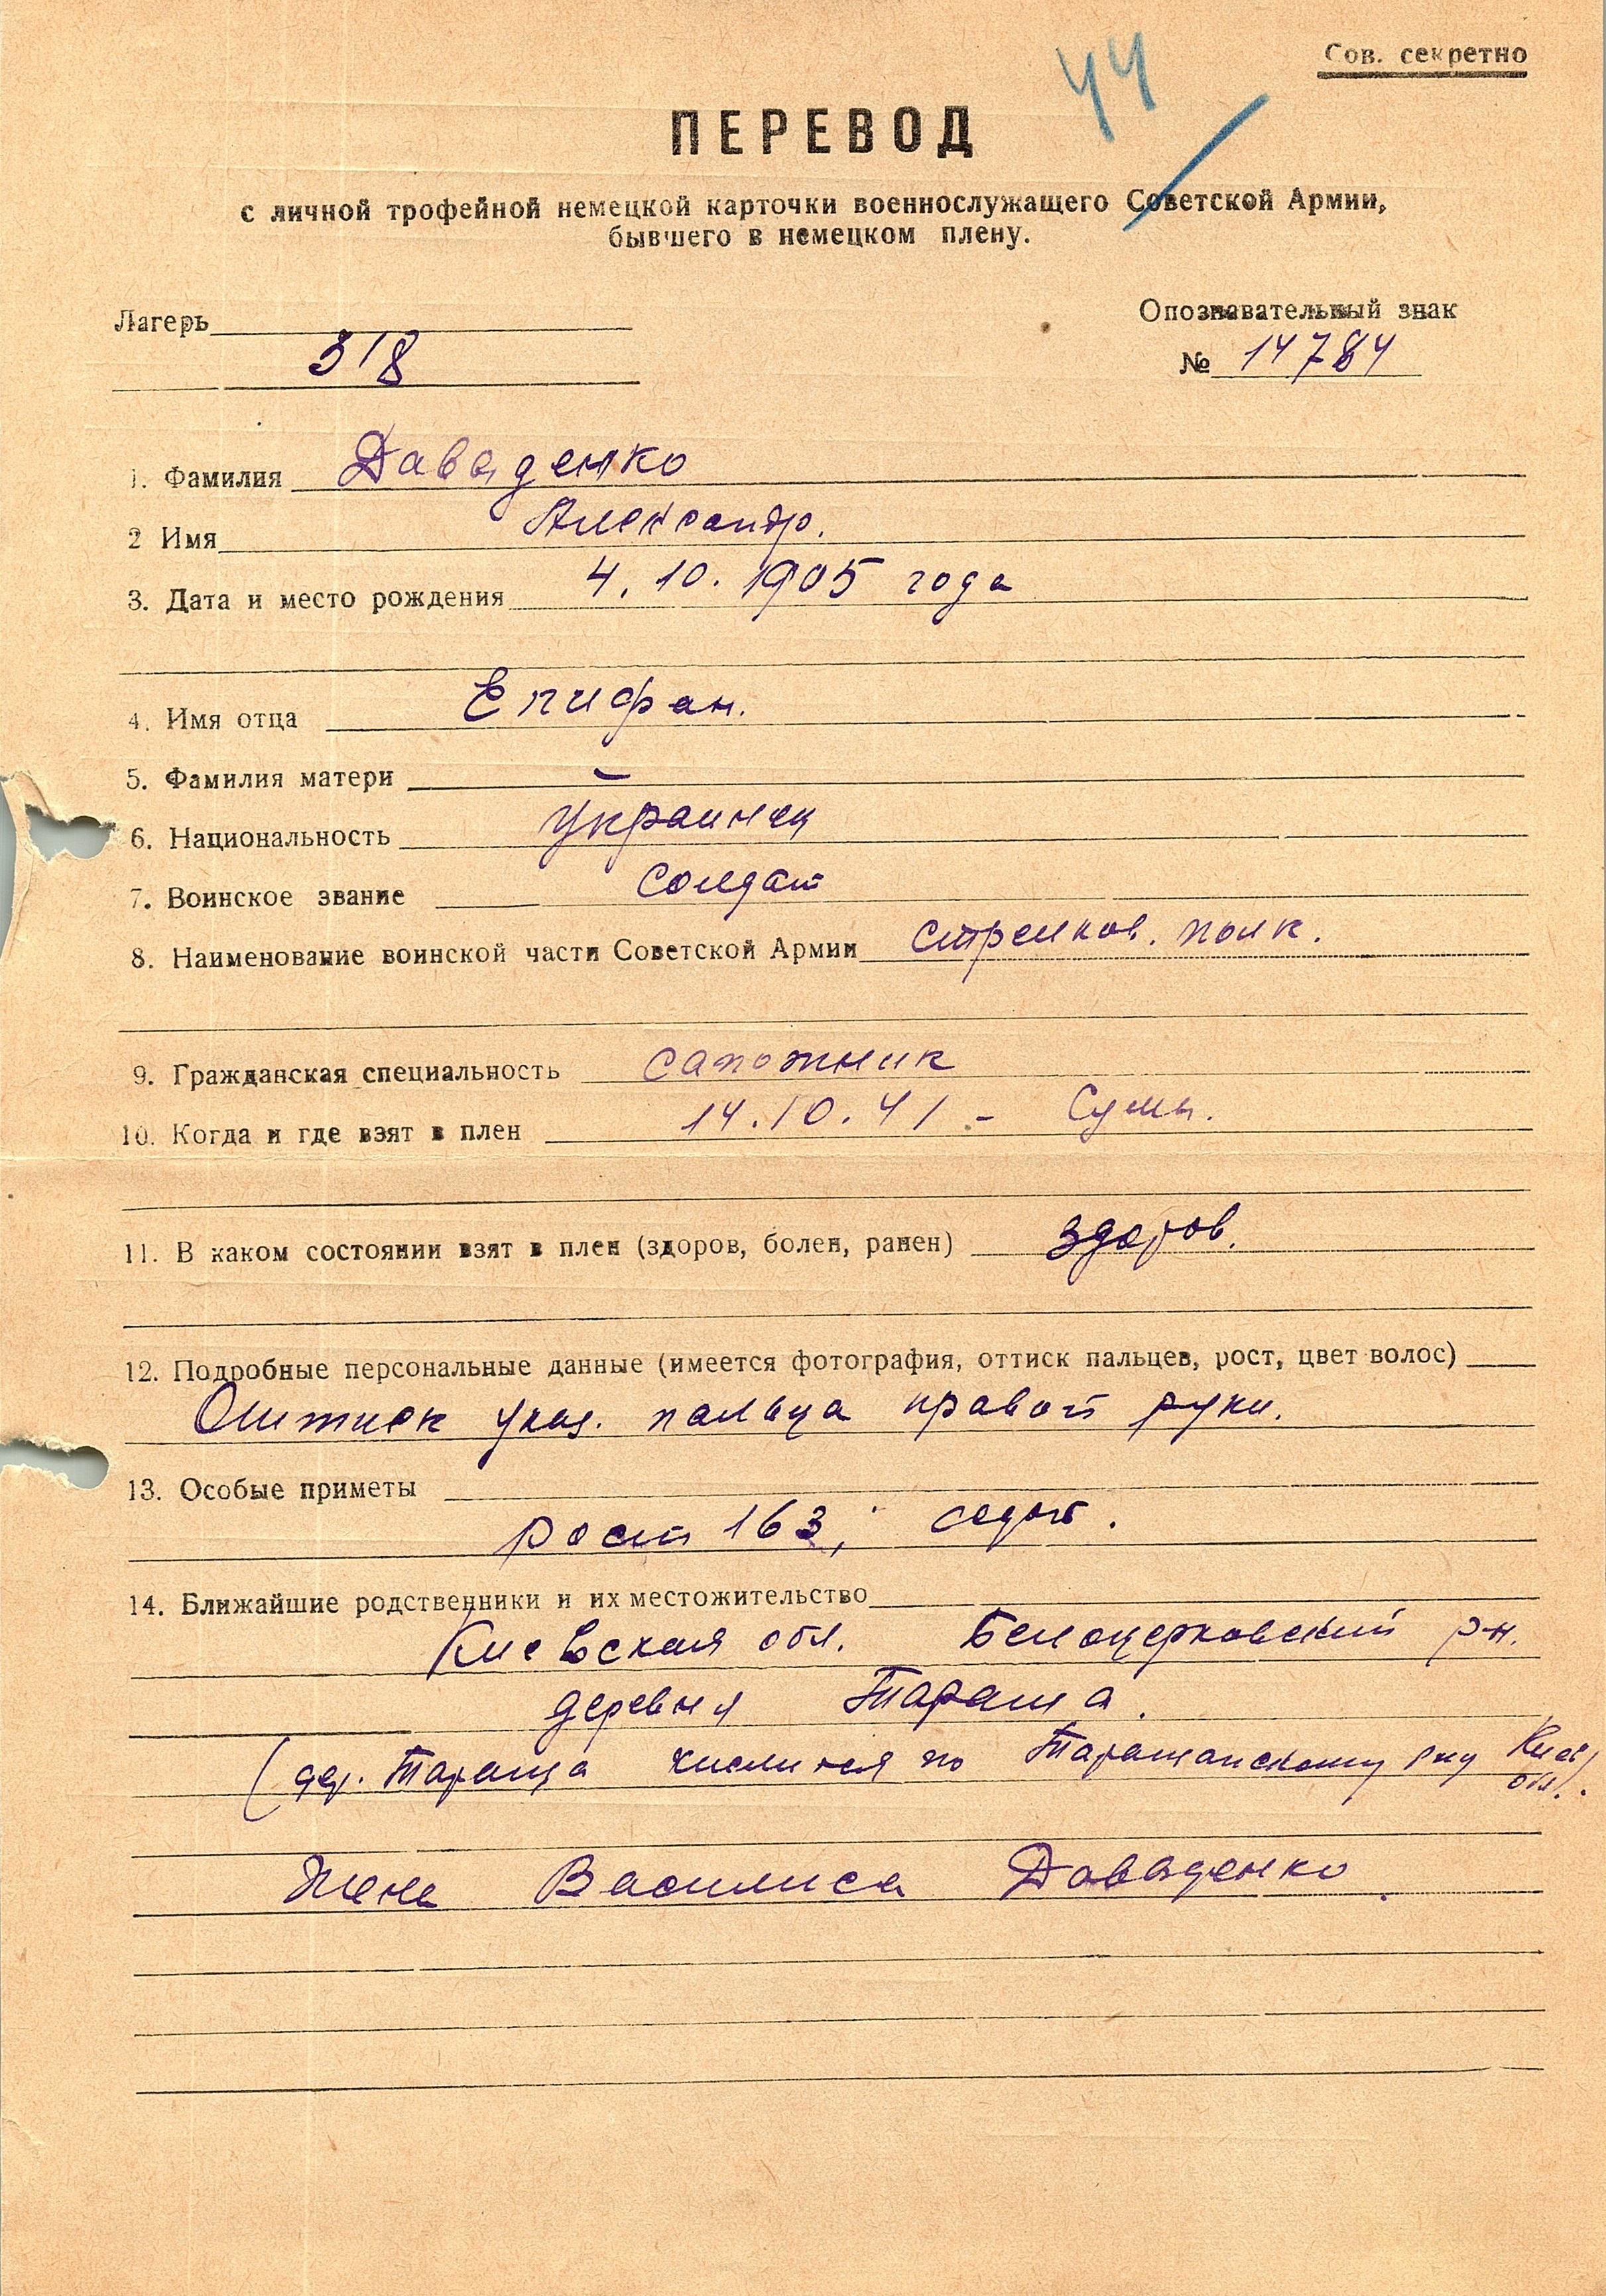 44
Сов. секретно
ПЕРЕВОД
с личной трофейной немецкой карточки военнослужащего Советской Армии,
бывшего в немецком плену.
Лагерь
318
Опознавательный знак
№ 14784
1. Фамилия Даваденко
2 Имя Александр.
3. Дата и место рождения 4. 10. 1905 года
4. Имя отца Епифан.
5. Фамилия матери –
6. Национальность украинец
7. Воинское звание солдат
8. Наименование воинской части Советской Армии стрелков. полк.
9. Гражданская специальность сапожник
10. Когда и где взят в плен 14.10.41 - Сумы.
11. В каком состоянии взят в плен (здоров, болен, ранен) здоров.
12. Подробные персональные данные (имеется фотография, оттиск пальцев, рост, цвет волос)
Оттиск указ. пальца правой руки.
13. Особые приметы
рост 163, седой.
14. Ближайшие родственники и их местожительство
Киевская обл. Белоцерковский р-н.
деревня Тараша.
(дер. Тараща числится по Таращанскому р-ну Киев. обл.).
Жена Василиса Даваденко.